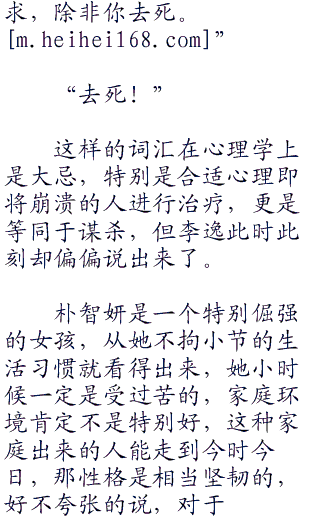 求，除非你去死。
[m.heihei168.com]”
“去死！”
这样的词汇在心理学上
是大忌，特别是合适心理即
将崩溃的人进行治疗，更是
等同于谋杀，但李逸此时此
刻却偏偏说出来了。
朴智妍是一个特别倔强
的女孩，从她不拘小节的生
活习惯就看得出来，她小时
候一定是受过苦的，家庭环
境肯定不是特别好，这种家
庭出来的人能走到今时今
日，那性格是相当坚韧的，
好不夸张的说，对于